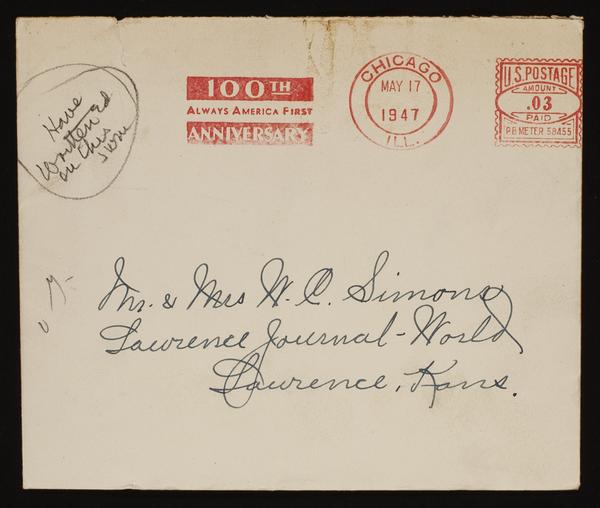 100TH
ALWAYS AMERICA FIRST
ANNIVERSARY
CHICAGO
MAY 17
1947
ILL.
U.S. POSTAGE
AMOUNT
.03
PAID
P.B. METER 58455
Have
written
on this
Mr. & Mrs W. C. Simons
Lawrence Journal-World
Lawrence, Kans.